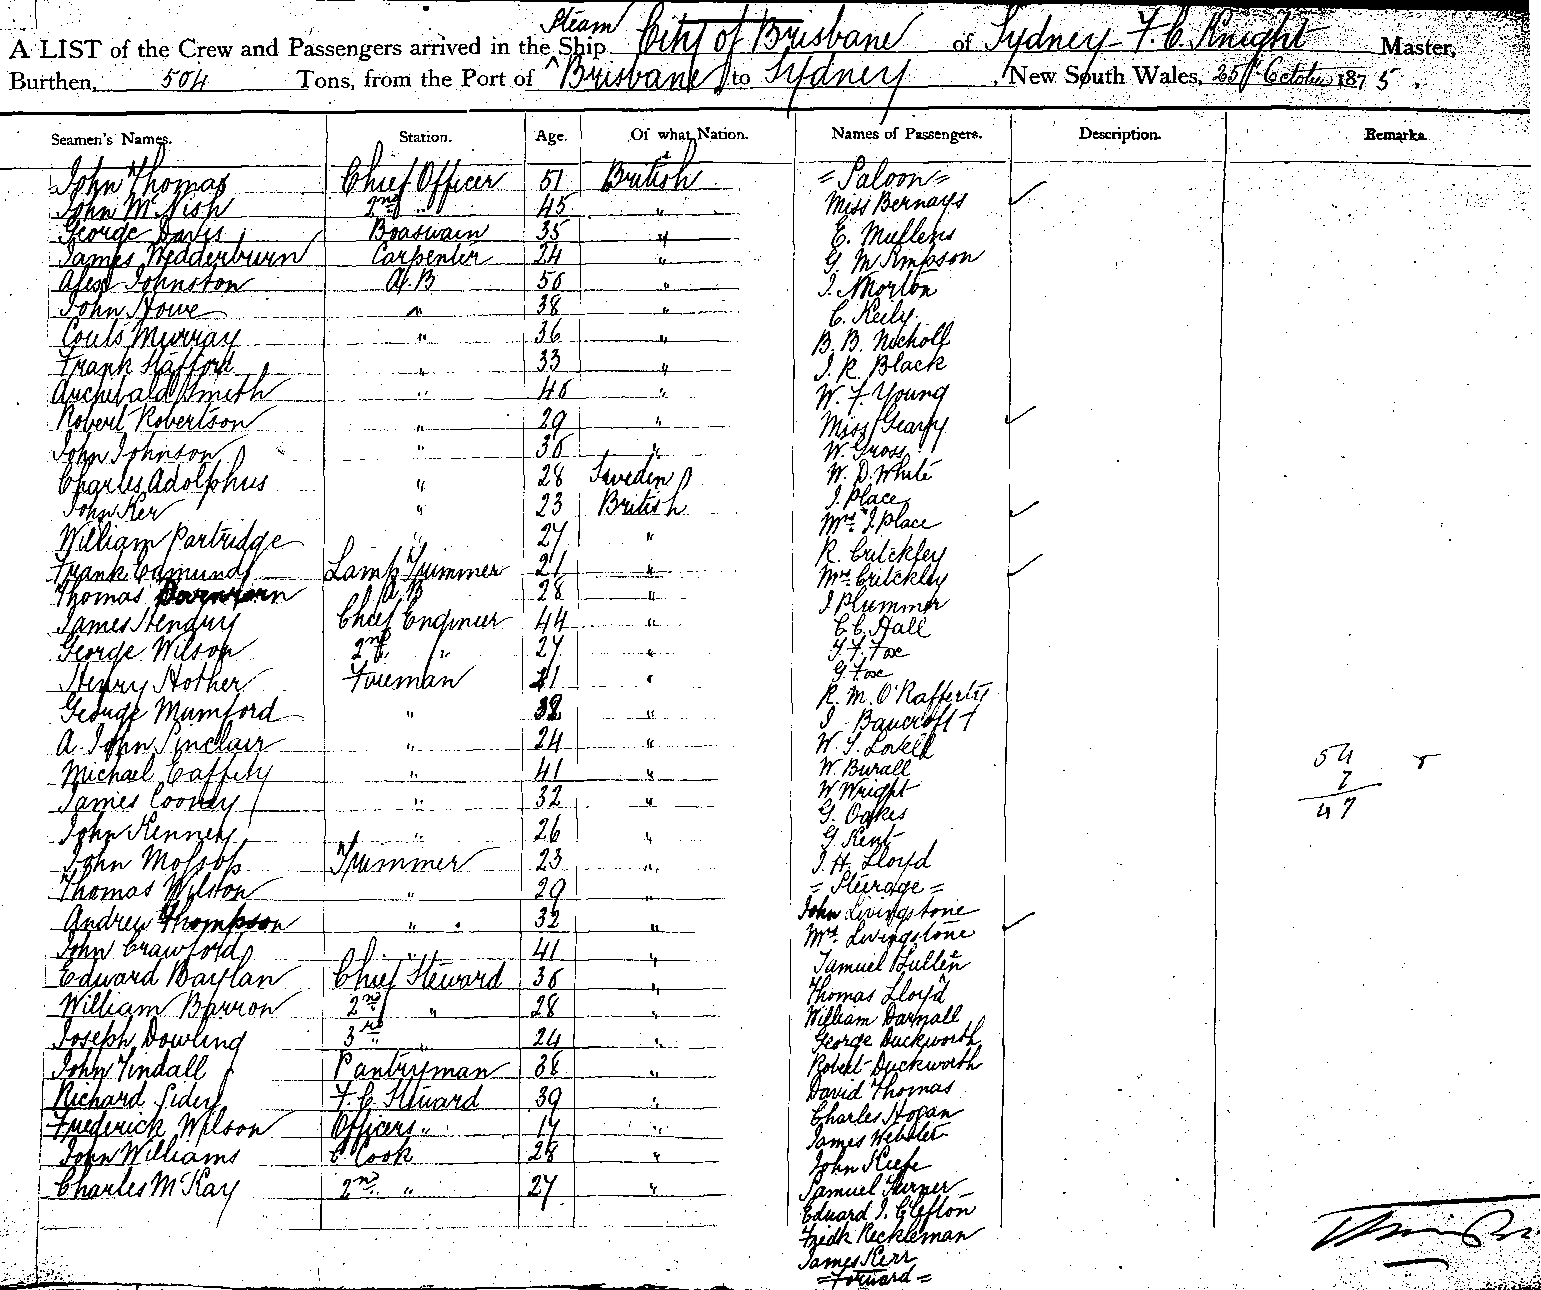 Steam
A LIST of the Crew and Passengers arrived in the Ship City of Brisbane of Sydney F. C. Knight Master,
Burthen, 504 Tons, from the Port of Brisbane to Sydney, New South Wales, 25th October 1875.
Seamen's Names. Station. Age. Of what Nation. Names of Passengers. Description. Remarks
John Thomas Chief Officer 51 British = Saloon =
John McNish 2nd " 45 " Miss Bernays
George Davis Boaswain 35 " E. Mullens
James Wedderburn Carpenter 24 " G
Alexr Johnston A.B 50 " J. Morton
John Howe " 38 " C. Keily
Couls Murray " 36 " B. B. Nicholl
Frank Stafford " 33 " J. R. Black
Archibald Smith " 40 " W. F. Young
Robert Robertson " 29 " Miss Geary
John Johnson " 30 " W. Gross
Charles Adolphus " 28 Sweden W. D. White
John Ker " 23 British J. Place
William Partridge " 27 " Mrs J. Place
Frank Edmunds Lamp Trimmer 21 " R. Critchley
Thomas A.B 28 " Mrs Critchley
James Hendry Chief Engineer 44 " J Plummer
George Wilson 2nd " 27 " C. C. Hall
Henry Hother Fireman 21 " G. F. Fox
George Mumford " 32 " G Fox
A. John Sinclair " 24 " R. M. O'Rafferty
Michael Caffity " 41 " J Bancroft
James Cooney " 32 " W. J. Lovell
John Kenney " 26 " W. Burall
John Mossop Trimmer 23 " W Wright
Thomas Wilson " 29 " G. Oakes
Andrew Thompson " 32 " G Kent
John Crawford " 41 " J. H. Lloyd
Edward Baylan Chief Steward 30 " = Steerage =
William Barron 2nd " 28 " John Livingstone
Joseph Dowling 3rd " 24 " Mrs Livingstone
John Tindall Pantryman 38 " Samuel Hullen
Richard Sider F. C. Steward 39 " Thomas Lloyd
Frederick Wilson Officers " 17 " William Darnall
John Williams C Cook 28 " George Duckworth
Charles McKay 2nd " 27 " Robert Duckworth
David Thomas
Charles Hogan
James Webster
John Keefe
Samuel Turner
Edward J. Clefton
Fredk Reckleman
James Kerr
= Forward =
54
7
47